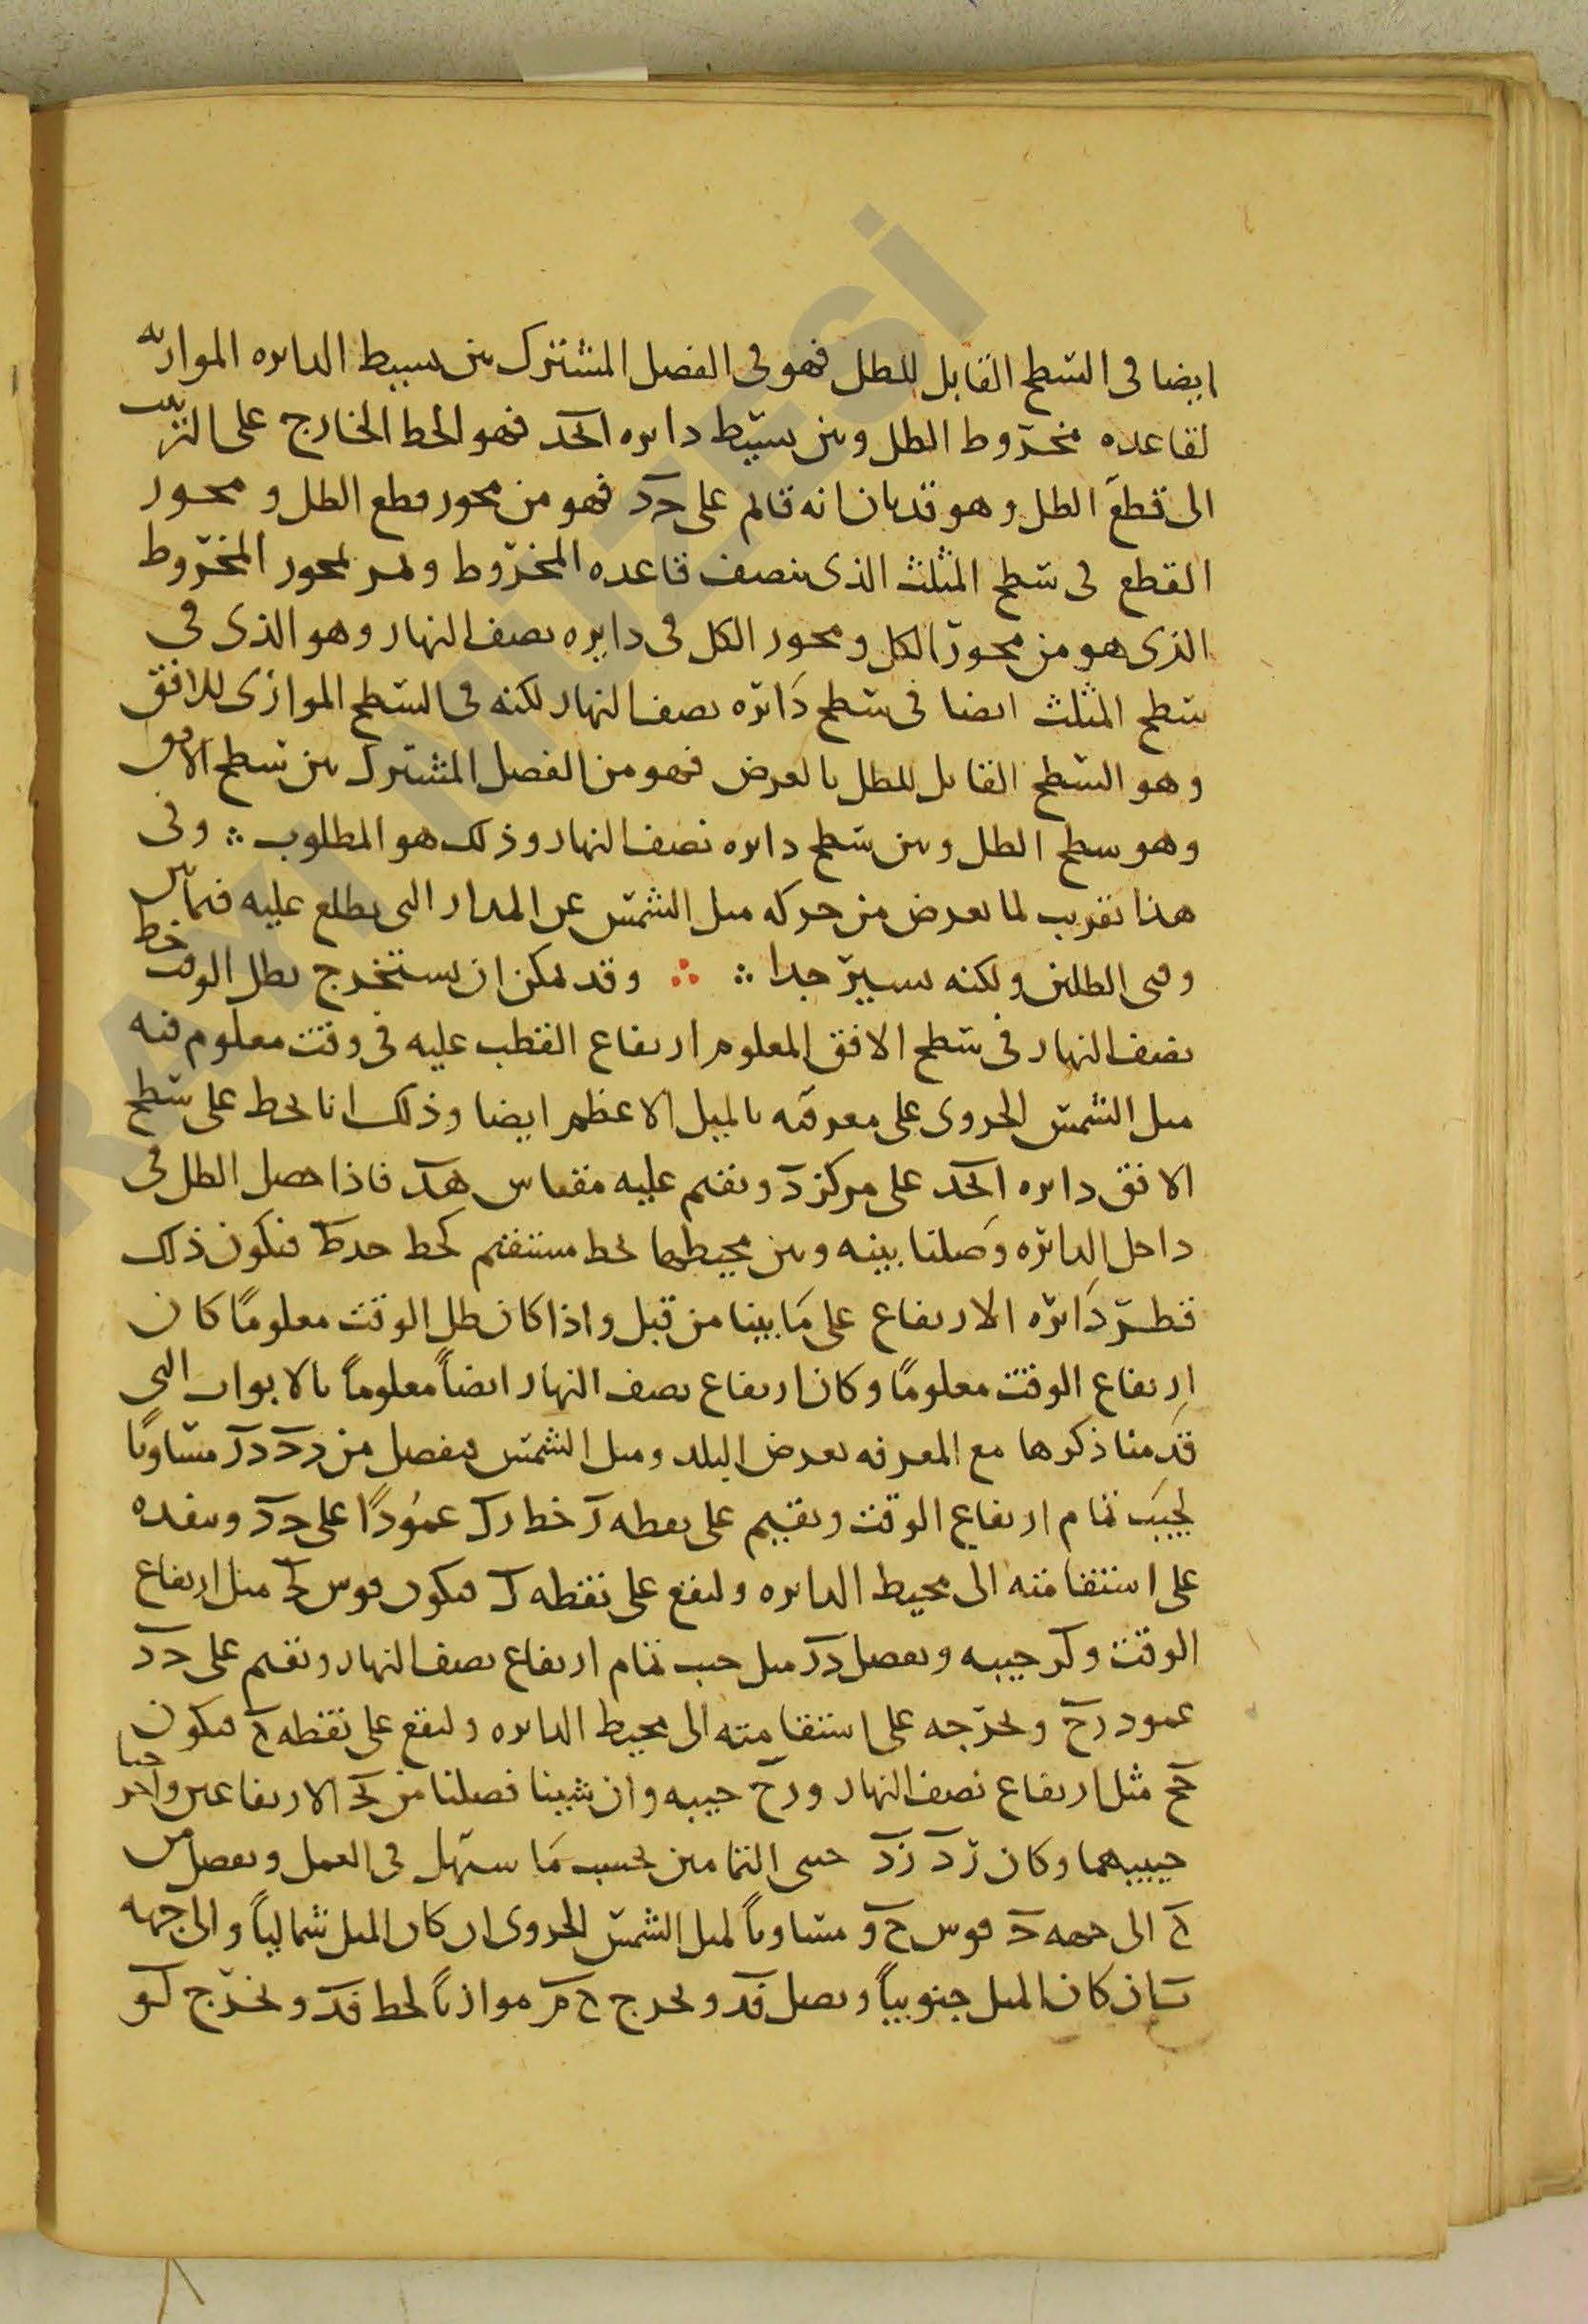 ايضا فى السطح القابل للظل فهو فى الفصل المشترك بين بسيط الدائره الموازيه
لقاعده مخروط الظل وبين بسيط دائره احد فهو الخط الخارج على الترتيب
الى قطع الظل وهو قد بان انه قائم على حد فهو من محور قطع الظل و محور
القطع فى سطح المثلث الذى ينصف قاعده المخروط ويمر بمحور المخروط
الذى هو من محور الكل ومحور الكل فى دايره نصف النهار وهو الذى فى
سطح المثلث ايضا فى سطح دائره نصف النهار لكنه فى السطح الموازى للافق
وهو السطح القابل للظل بالعرض فهو من الفصل المشترك بين سطح الافق
وهو سطح الظل وبين سطح دائره نصف النهار وذلك هو المطلوب ؞ وفى
هذا تقريب لما يعرض من حركه ميل الشمس عن المدار التى يطلع عليه فيما بين
وقتى الظلين ولكنه يسير جدا ؞ ؞ وقد يمكن ان يستخرج بظل الوقت خط
نصف النهار فى سطح الافق المعلوم ارتفاع القطب عليه فى وقت معلوم فيه
ميل الشمس الجزوى على معرفه بالميل الاعظم ايضا وذلك انا نخط على سطح
الافق دائره احد على مركز د ونقيم عليه مقياس هد فاذا حصل الظل فى
داخل الدائره وصلنا بينه وبين محيطها بخط مستقيم كخط حدط فيكون ذلك
قطر دائره الارتفاع على ما بينا من قبل واذا كان ظل الوقت معلوما كان
ارتفاع الوقت معلوما وكان ارتفاع نصف النهار ايضاً معلوماً بالابواب التى
قدمنا ذكرها مع المعرفه بعرض البلد وميل الشمس فيفصل من دح در مساويا
لجيب تمام ارتفاع الوقت ونقيم على نقطه ر خط رك عمودًا على حد وينفذه
على استقامته الى محيط الدائره وليقع على نقطه ك فيكون قوس كح مثل ارتفاع
الوقت وكر جيبه ونفصل در مثل جيب تمام ارتفاع نصف النهار ونقيم على حد
عمود رح ونخرجه على استقامته الى محيط الدائره وليقع على نقطه ح فيكون
حح مثل ارتفاع نصف النهار ورح جيبه وان شينا فصلنا من كح الارتفاعين واخرجنا
جيبيهما وكان رد زد جيبى التمامين بحسب ما يسهل فى العمل ونفصل من
ح الى جهه ح قوس حو مساوياً لميل الشمس الجزوى ان كان الميل شمالياً والى جهه
ان كان الميل جنوبياً ونصل فد ونخرج حم موازياً لخط فد ونخرج كو